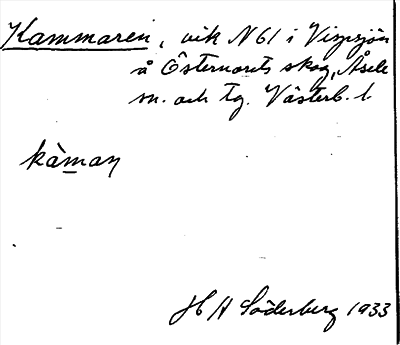 Kammaren, vik N 61 i Vispsjön
å Östernorets skog, Åsele
sn. och tg. Västerb. l.
kàman
H A Söderberg 1933